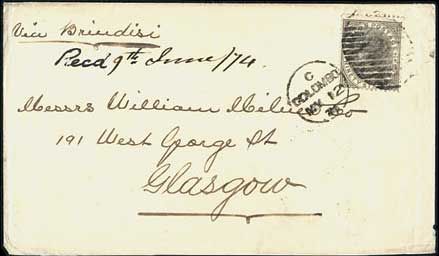 Via Brindisi
Recd 9th June/74.
C
COLOMBO
MY 12
74
Messrs William & Co
191 West George St
Glasgow